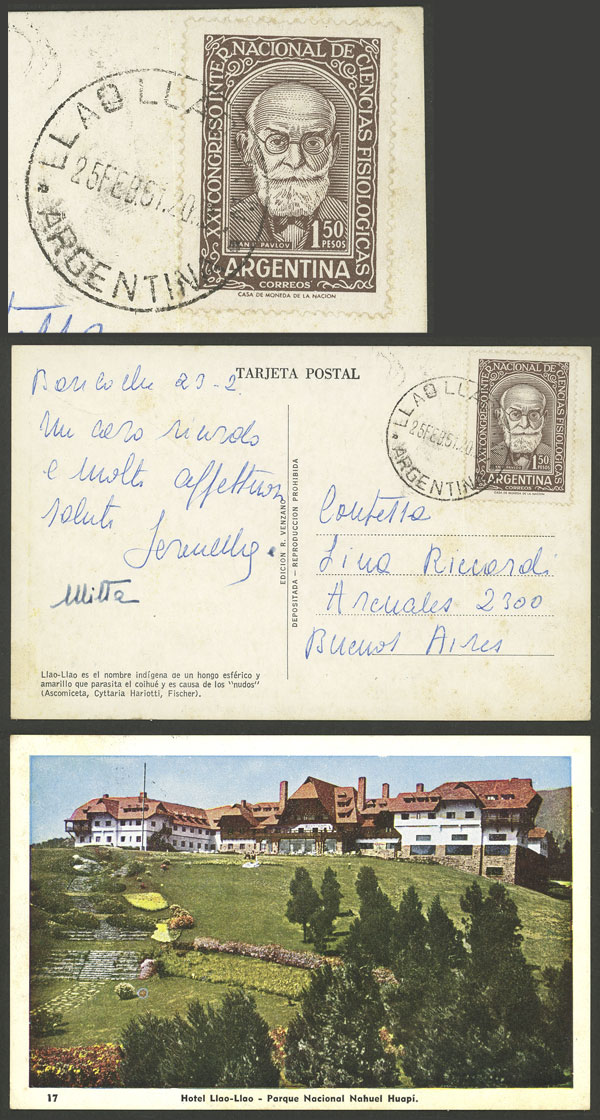 LLAO LLA
25FEB.61.20.
ARGENTINA
XXI° CONGRESO INTERNACIONAL DE CIENCIAS FISIOLOGICAS
IVAN P. PAVLOV
1.50
PESOS
ARGENTINA
CORREOS
CASA DE MONEDA DE LA NACION
TARJETA POSTAL
LLAO LLA
25FEB.61.20.
ARGENTINA
XXI° CONGRESO INTERNACIONAL DE CIENCIAS FISIOLOGICAS
1.50
PESOS
ARGENTINA
CORREOS
CASA DE MONEDA DE LA NACION
Bariloche 23-2
Un caro ricordo
e molti affettuosi
saluti
EDICION R. VENZANO
DEPOSITADA — REPRODUCCION PROHIBIDA
Contessa
Lina Riccardi
Arenales 2300
Buenos Aires
Llao-Llao es el nombre indígena de un hongo esférico y
amarillo que parasita el coihué y es causa de los "nudos"
(Ascomiceta, Cyttaria Hariotti, Fischer).
17
Hotel Llao-Llao - Parque Nacional Nahuel Huapí.